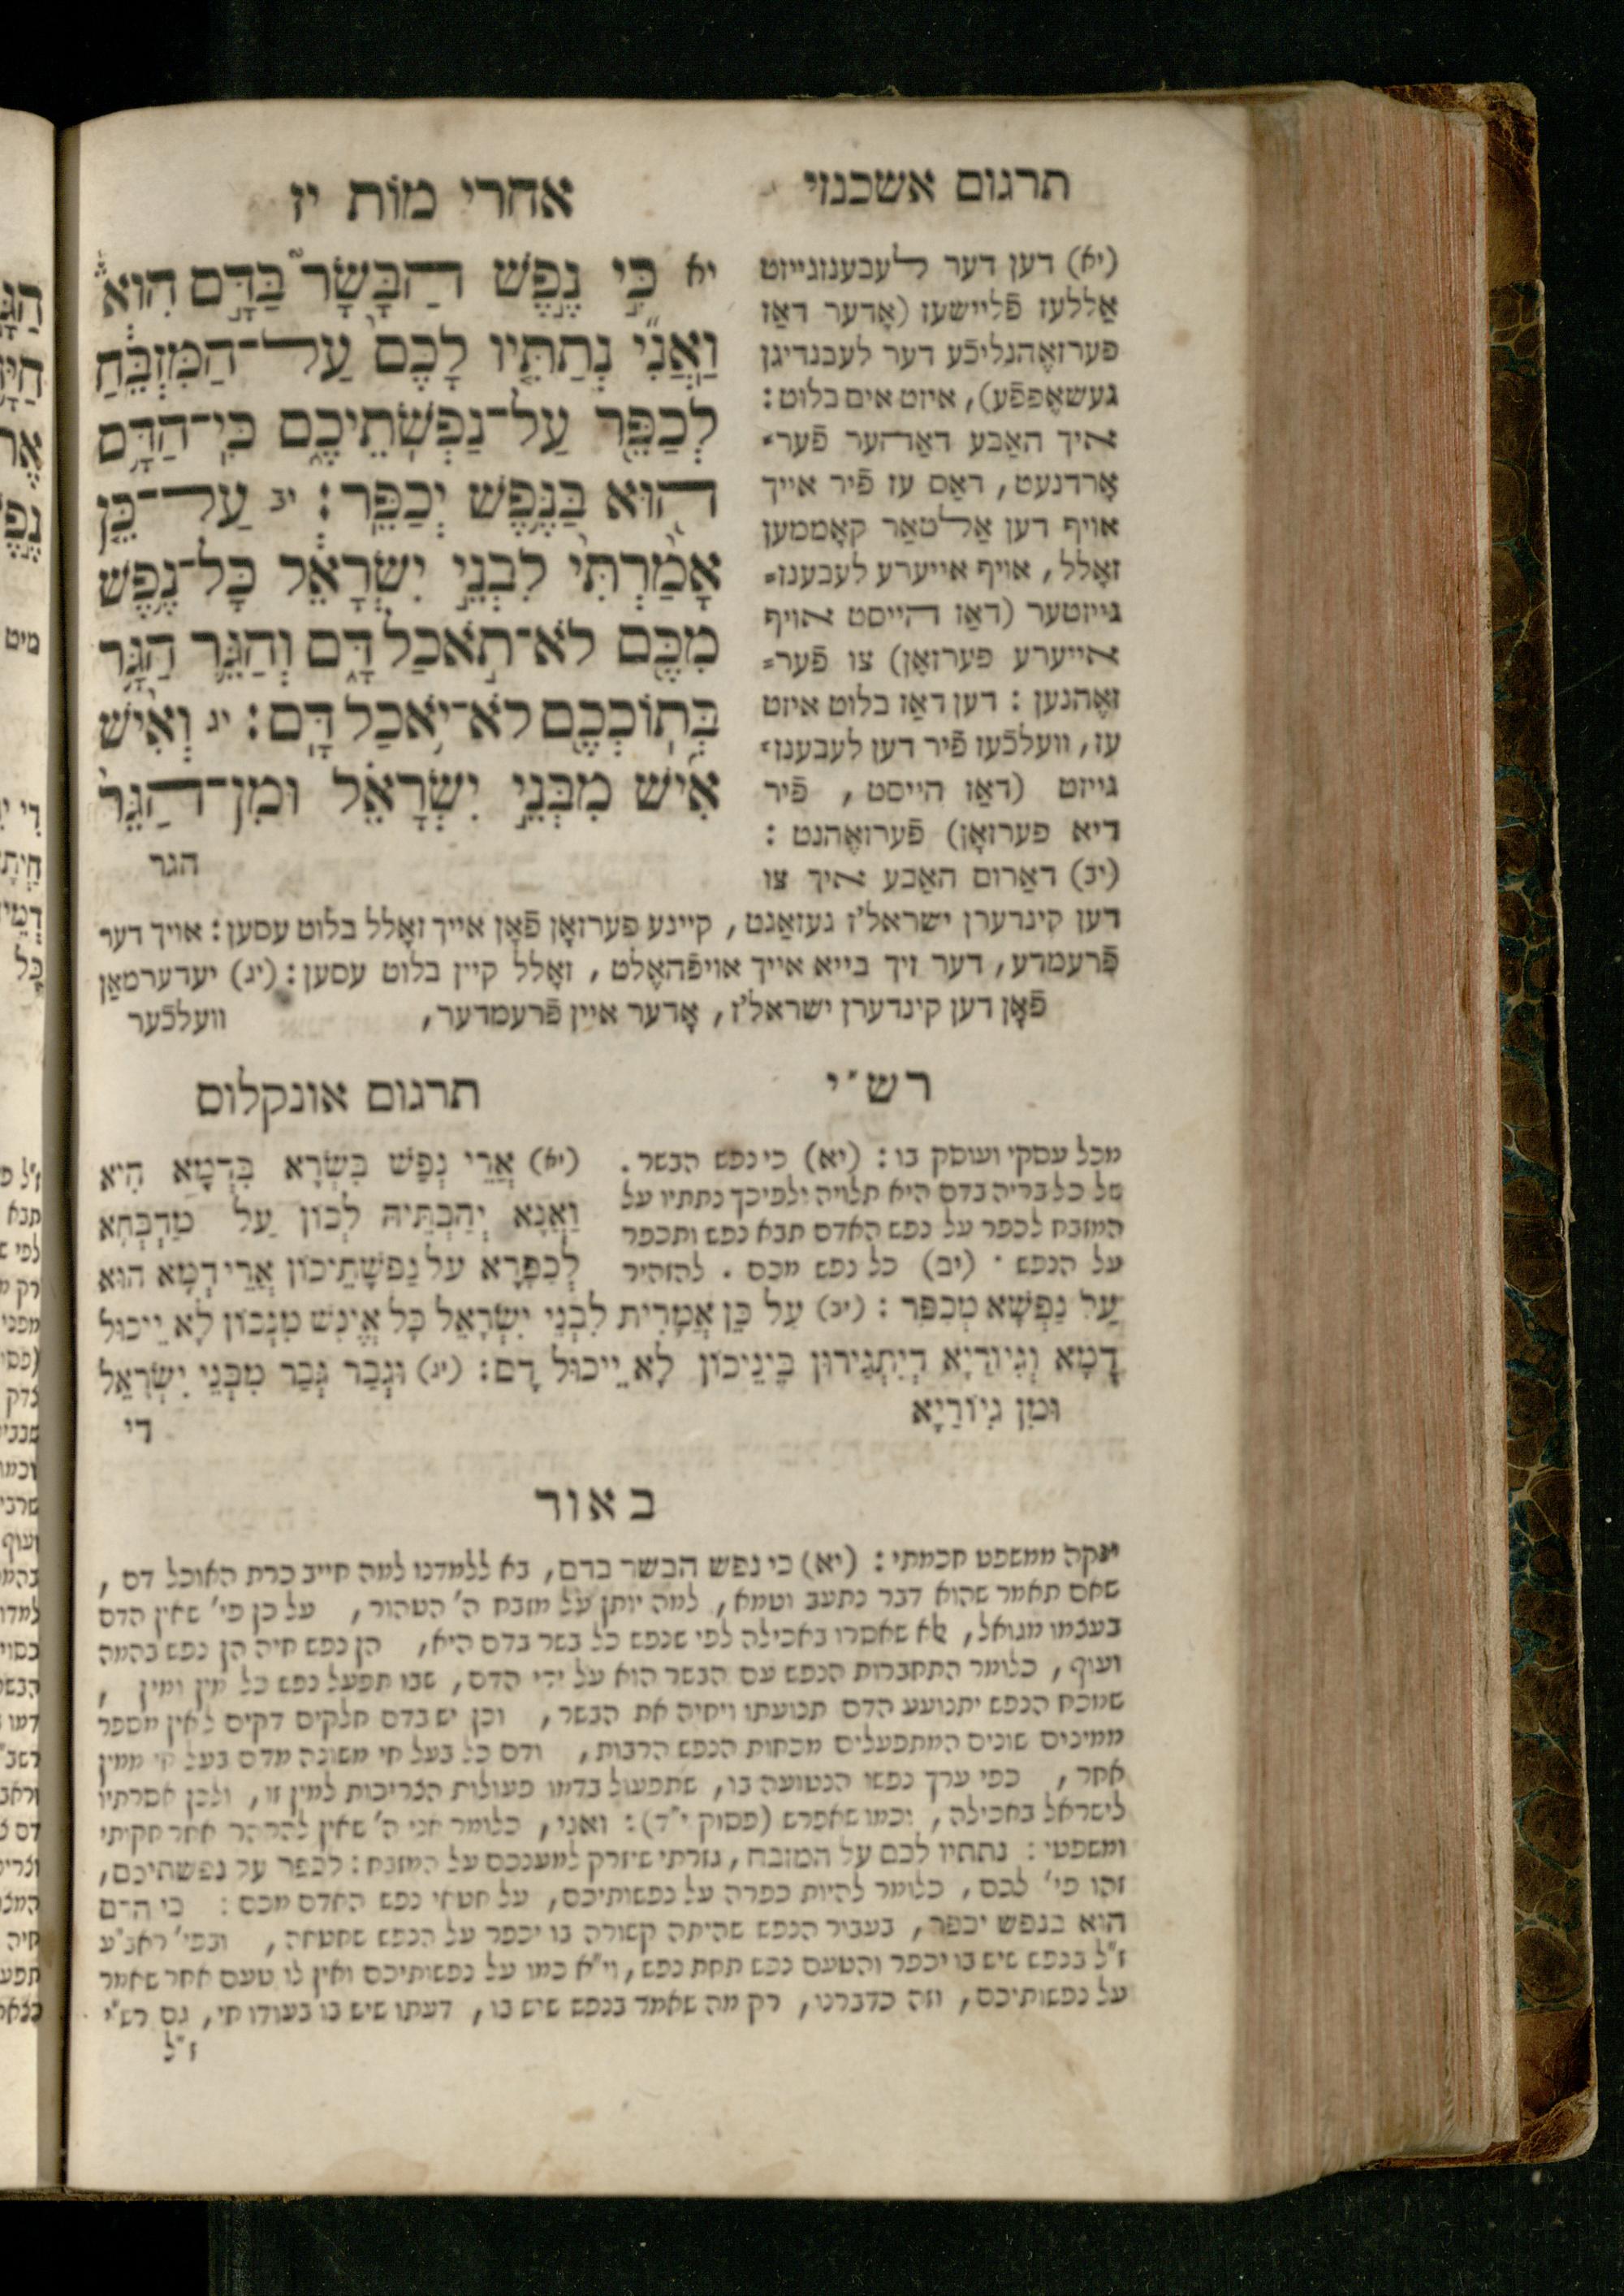 תרגום אשכנזי
אחרי מות יז
(יא) דען דער לעבענזגייזט
אַללעז פֿליישעז (אָדער דאַז
פערזאֶהנליכֿע דער לעבנדיגן
געשאֶפפֿע), איזט אים בלוט:
איך האַבע דאַהער פֿער⸗
אָרדנעט, דאַס עז פֿיר אייך
אויף דען אַלטאַר קאָממען
זאָלל, אויף אייערע לעבענז⸗
גייזטער (דאַז הייסט אויף
אייערע פערזאָן) צו פֿער⸗
זאֶהנען: דען דאַז בלוט איזט
עז, וועלכֿעז פֿיר דען לעבענז⸗
גייזט (דאַז הייסט, פֿיר
דיא פערזאָן) פֿערזאֶהנט:
(יב) דאַרום האַבע איך צו
דען קינדערן ישראל'ז געזאַגט, קיינע פערזאָן פֿאָן אייך זאָלל בלוט עסען: אויך דער
פֿרעמדע, דער זיך בייא אייך אויפֿהאֶלט, זאָלל קיין בלוט עסען: (יג) יעדערמאַן
פֿאָן דען קינדערן ישראל'ז, אָדער איין פֿרעמדער,
וועלכֿער
יא כִּ֣י נֶ֣פֶשׁ הַבָּשָׂר֮ בַּדָּ֣ם הִוא֒
וַאֲנִ֞י נְתַתִּ֤יו לָכֶם֙ עַל־הַמִּזְבֵּ֔חַ
לְכַפֵּ֖ר עַל־נַפְשֹׁתֵיכֶ֑ם כִּֽי־הַדָּ֥ם
ה֖וּא בַּנֶּ֥פֶשׁ יְכַפֵּֽר: יב עַל־כֵּ֤ן
אָמַ֙רְתִּי֙ לִבְנֵ֣י יִשְׂרָאֵ֔ל כָּל־נֶ֥פֶשׁ
מִכֶּ֖ם לֹא־תֹ֣אכַל דָּ֑ם וְהַגֵּ֛ר הַגָּ֥ר
בְּתֽוֹכְכֶ֖ם לֹא־יֹ֥אכַל דָּֽם: יג וְאִ֨ישׁ
אִ֜ישׁ מִבְּנֵ֣י יִשְׂרָאֵ֗ל וּמִן־הַגֵּר֙
הגר
רש"י
מכל עסקי ועוסק בו: (יא) כי נפש הבשר.
של כל בריה בדם היא תלויה ולפיכך נתתיו על
המזבח לכפר על נפש האדם תבא נפש ותכפר
על הנפש · (יב) כל נפש מכם. להזהיר
תרגום אונקלוס
(יא) אֲרֵי נְפַשׁ בִּשְׂרָא בִּדְמָא הִיא
וַאֲנָא יְהַבְתֵּיהּ לְכוֹן עַל מַדְבְּחָא
לְכַפָּרָא עַל נַפְשָׁתֵיכוֹן אֲרֵי דְמָא הוּא
עַל נַפְשָׁא מְכַפֵּר: (יב) עַל כֵּן אֲמָרִית לִבְנֵי יִשְׂרָאֵל כָּל אֱינִשׁ מִנְּכוֹן לָא יֵיכוּל
דְּמָא וְגִיּוֹרַיָּא דְיִתְגַּיְּרוּן בֵּינֵיכוֹן לָא יֵיכוּל דָּם: (יג) וּגְבַר גְּבַר מִבְּנֵי יִשְׂרָאֵל
וּמִן גִּיּוֹרַיָּא
די
באור
ינקה ממשפט חכמתי: (יא) כי נפש הבשר בדם, בא ללמדנו למה חייב כרת האוכל דם,
שאם תאמר שהוא דבר נתעב וטמא, למה יותן על מזבח ה' הטהור, על כן פי' שאין הדם
בעצמו מגואל, לא שאסרו באכילה לפי שנפש כל בשר בדם היא, הן נפש חיה הן נפש בהמה
ועוף, כלומר התחברות הנפש עם הבשר הוא על ידי הדם, שבו תפעל נפש כל מין ומין,
שמכח הנפש יתנועע הדם תנועתו ויחיה את הבשר, וכן יש בדם חלקים דקים לאין מספר
ממינים שונים המתפעלים מכחות הנפש הרבות, ודם כל בעל חי משונה מדם בעל חי ממין
אחר, כפי ערך נפשו הנטועה בו, שתפעול בדמו פעולות הצריכות למין זו, ולכן אסרתיו
לישראל באכילה, וכמו שאפרש (פסוק י"ד): ואני, כלומר אני ה' שאין להרהר אחר חקיתי
ומשפטי: נתתיו לכם על המזבח, גזרתי שיזרק למענכם על המזבח: לכפר על נפשתיכם,
זהו פי' לכם, כלומר להיות כפרה על נפשותיכם, על חטאי נפש האדם מכם: כי הדם
הוא בנפש יכפר, בעבור הנפש שהיתה קשורה בו יכפר על הנפש שחטאה, ובפי' ראב"ע
ז"ל בנפש שיש בו יכפר והטעם נפש תחת נפש, וי"א כמו על נפשותיכם ואין לו טעם אחר שאמר
על נפשותיכם, וזה כדברנו, רק מה שאמר בנפש שיש בו, דעתו שיש בו בעודו חי, גם רש"י
ז"ל